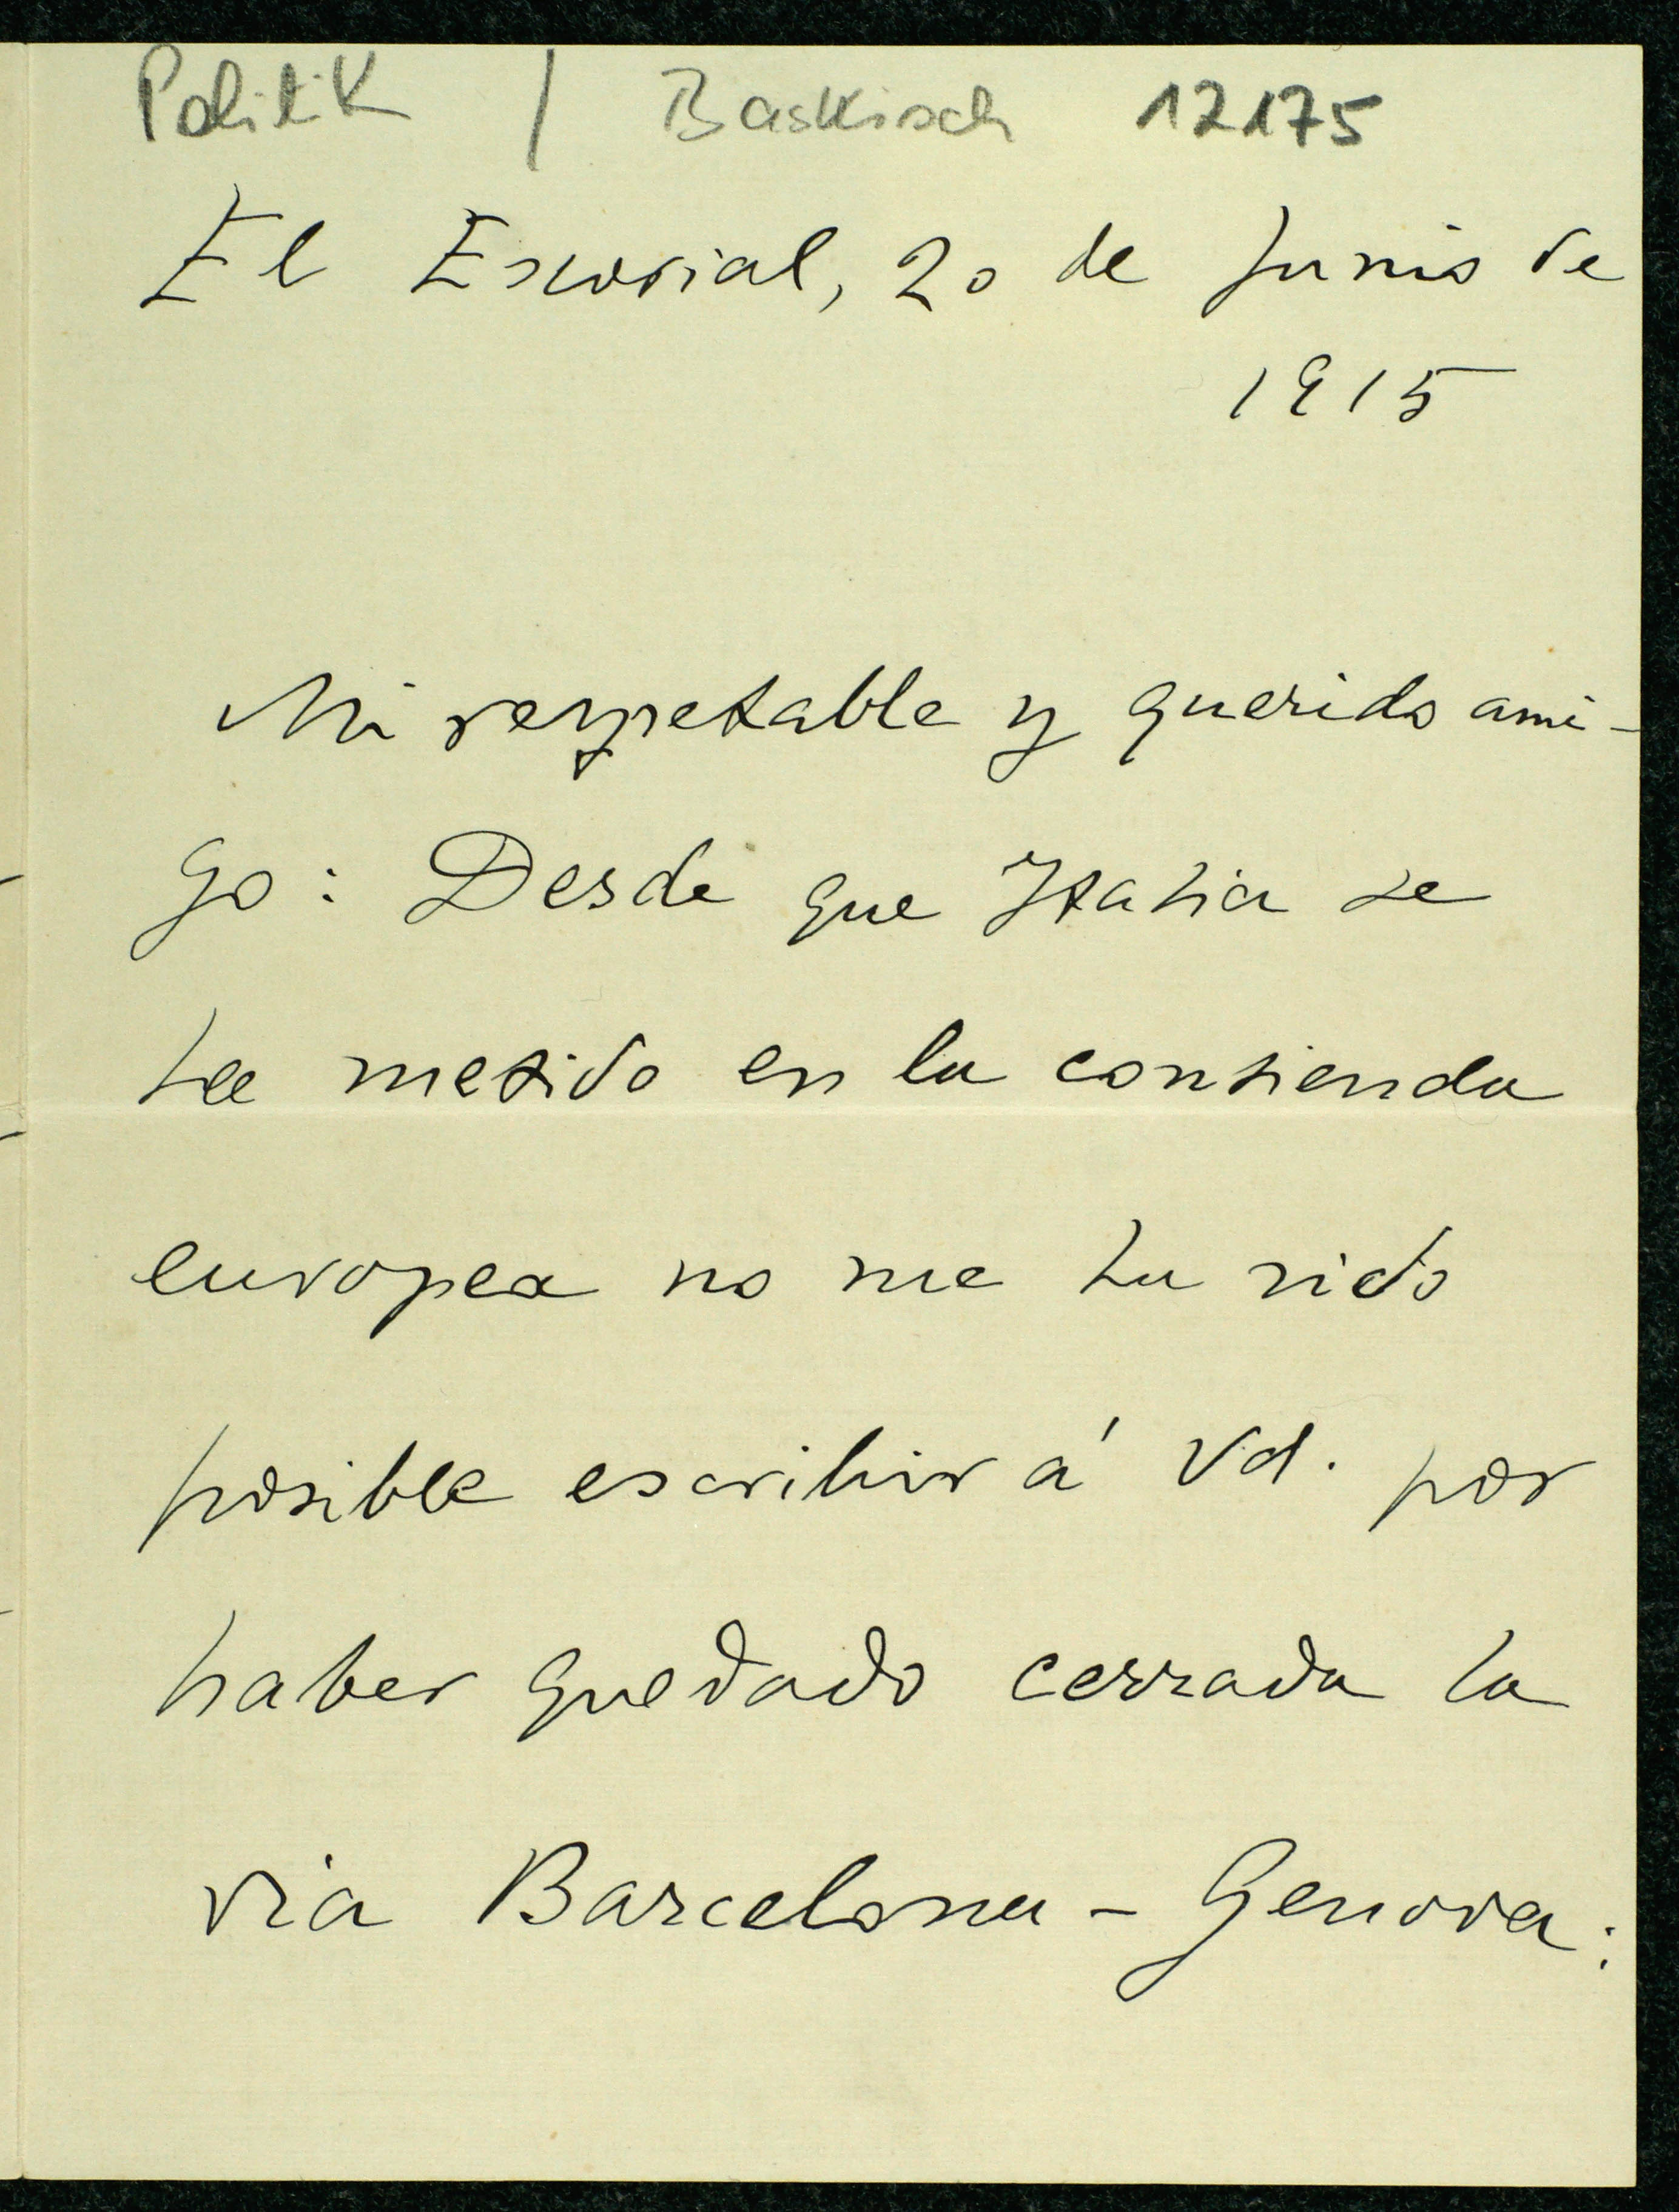 Politik / Baskisch 12175
El Escorial, 20 de Junio de
1915
Mi respetable y querido ami-
go: Desde que Italia se
ha metido en la contienda
europea no me ha sido
posible escribir á Vd. por
haber quedado cerrada la
via Barcelona - Genova: